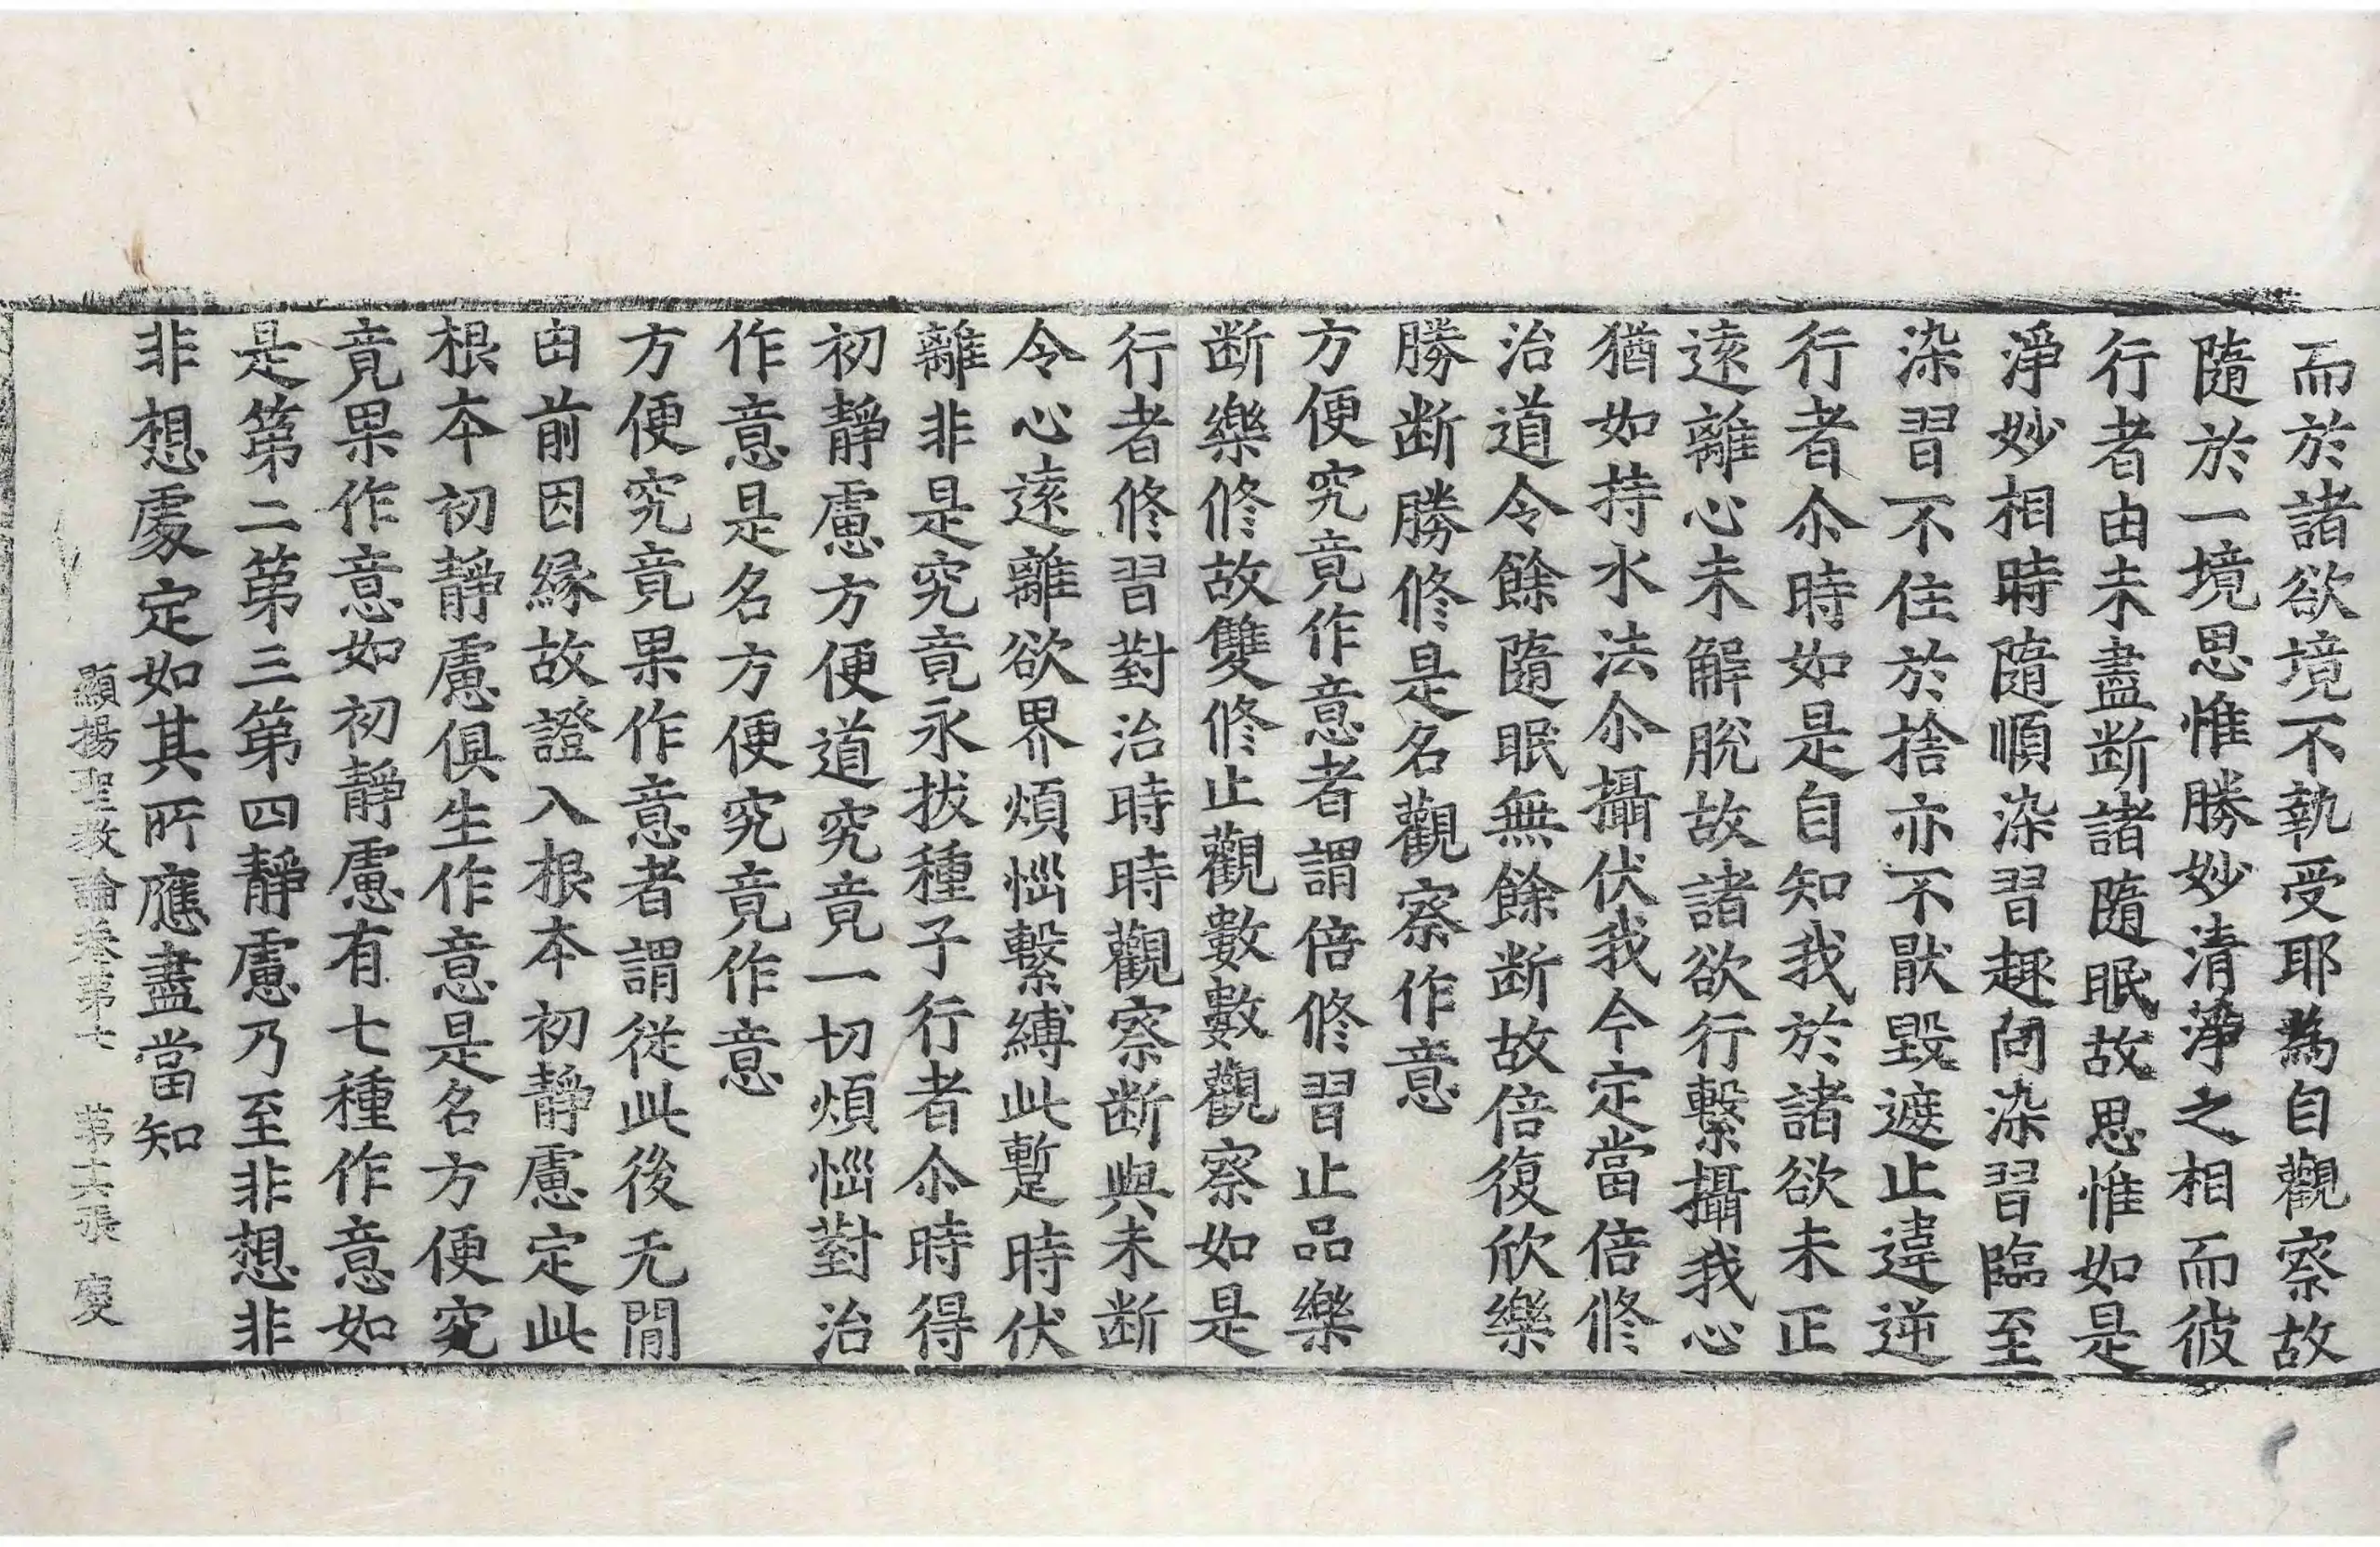 而於諸欲境不執受耶為自觀察故
隨於一境思惟勝妙清淨之相而彼
行者由未盡断諸隨眠故思惟如是
淨妙相時隨順染習趣向染習臨至
染習不住於捨亦不猒毀遮止違逆
行者尒時如是自知我於諸欲未正
遠離心未解脫故諸欲行繫攝我心
猶如持水法尒攝伏我今定當倍修
治道令餘隨眠無餘断故倍復欣樂
勝断勝修是名觀察作意
方便究竟作意者謂倍修習止品樂
断樂修故雙修止觀數數觀察如是
行者修習對治時時觀察断與未断
令心遠離欲界煩惱繫縛此暫時伏
離非是究竟永拔種子行者尒時得
初靜慮方便道究竟一切煩惱對治
作意是名方便究竟作意
方便究竟果作意者謂從此後无閒
由前因緣故證入根本初靜慮定此
根本初靜慮俱生作意是名方便究
竟果作意如初靜慮有七種作意如
是第二第三第四靜慮乃至非想非
非想處定如其所應盡當知
顯揚聖教論卷第七 第十六張 竟